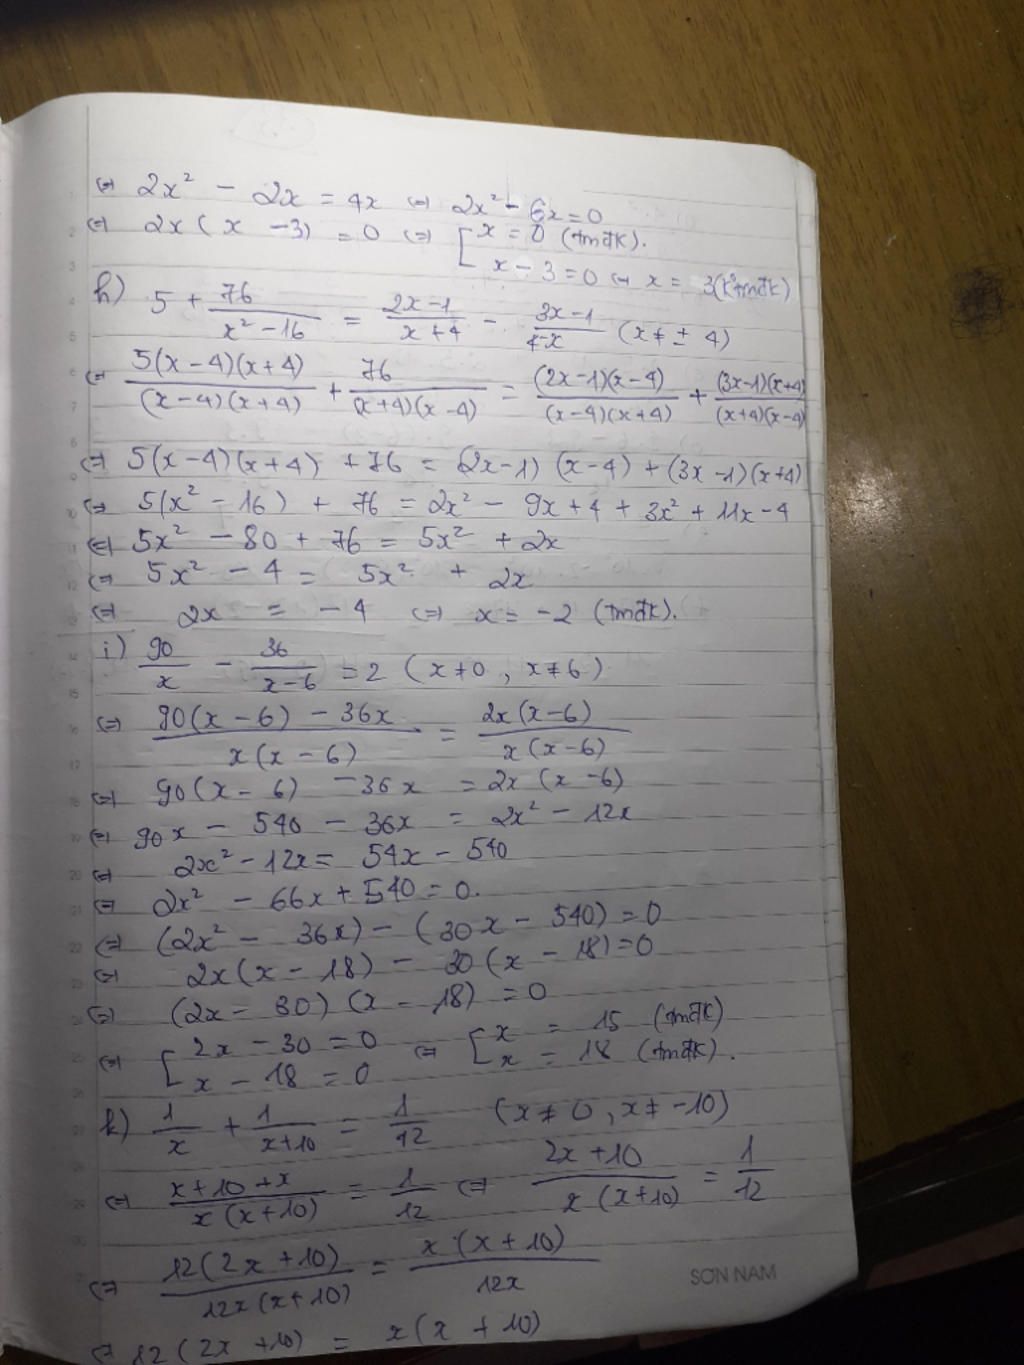 ⇔ 2x² - 2x = 4x ⇔ 2x² - 6x = 0
⇔ 2x(x - 3) = 0 ⇔ [ x = 0 (tmđk).
x - 3 = 0 ⇔ x = 3 (k°tmđk)
h) 5 + 76/(x² - 16) = (2x - 1)/(x + 4) - (3x - 1)/(4 - x) (x ≠ ± 4)
⇔ 5(x - 4)(x + 4)/((x - 4)(x + 4)) + 76/((x + 4)(x - 4)) = (2x - 1)(x - 4)/((x - 4)(x + 4)) + (3x - 1)(x + 4)/((x + 4)(x - 4))
⇔ 5(x - 4)(x + 4) + 76 = (2x - 1)(x - 4) + (3x - 1)(x + 4)
⇔ 5(x² - 16) + 76 = 2x² - 9x + 4 + 3x² + 11x - 4
⇔ 5x² - 80 + 76 = 5x² + 2x
⇔ 5x² - 4 = 5x² + 2x
⇔ 2x = - 4 ⇔ x = -2 (tmđk).
i) 90/x - 36/(x - 6) = 2 (x ≠ 0, x ≠ 6)
⇔ (90(x - 6) - 36x)/(x(x - 6)) = 2x(x - 6)/(x(x - 6))
⇔ 90(x - 6) - 36x = 2x(x - 6)
⇔ 90x - 540 - 36x = 2x² - 12x
⇔ 2x² - 12x = 54x - 540
⇔ 2x² - 66x + 540 = 0.
⇔ (2x² - 36x) - (30x - 540) = 0
⇔ 2x(x - 18) - 30(x - 18) = 0
⇔ (2x - 30)(x - 18) = 0
⇔ [ 2x - 30 = 0 ⇔ [ x = 15 (tmđk)
x - 18 = 0 x = 18 (tmđk).
k) 1/x + 1/(x + 10) = 1/12 (x ≠ 0, x ≠ -10)
⇔ (x + 10 + x)/(x(x + 10)) = 1/12 ⇔ (2x + 10)/(x(x + 10)) = 1/12
⇔ 12(2x + 10)/(12x(x + 10)) = x(x + 10)/(12x)
⇔ 12(2x + 10) = x(x + 10)
SON NAM